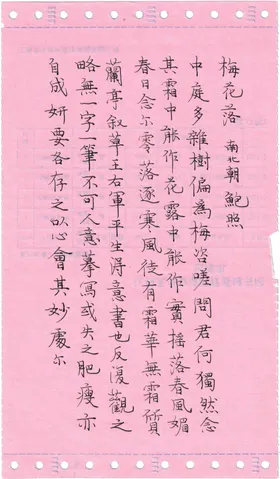 梅花落 南北朝 鮑照
中庭多雜樹偏為梅咨嗟問君何獨然念
其霜中能作花露中能作實搖落春風媚
春日念尔零落逐寒風徒有霜華無霜質
蘭亭叙草王右軍平生得意書也反復觀之
略無一字一筆不可人意摹寫或失之肥瘦亦
自成妍要各存之以心會其妙處尔